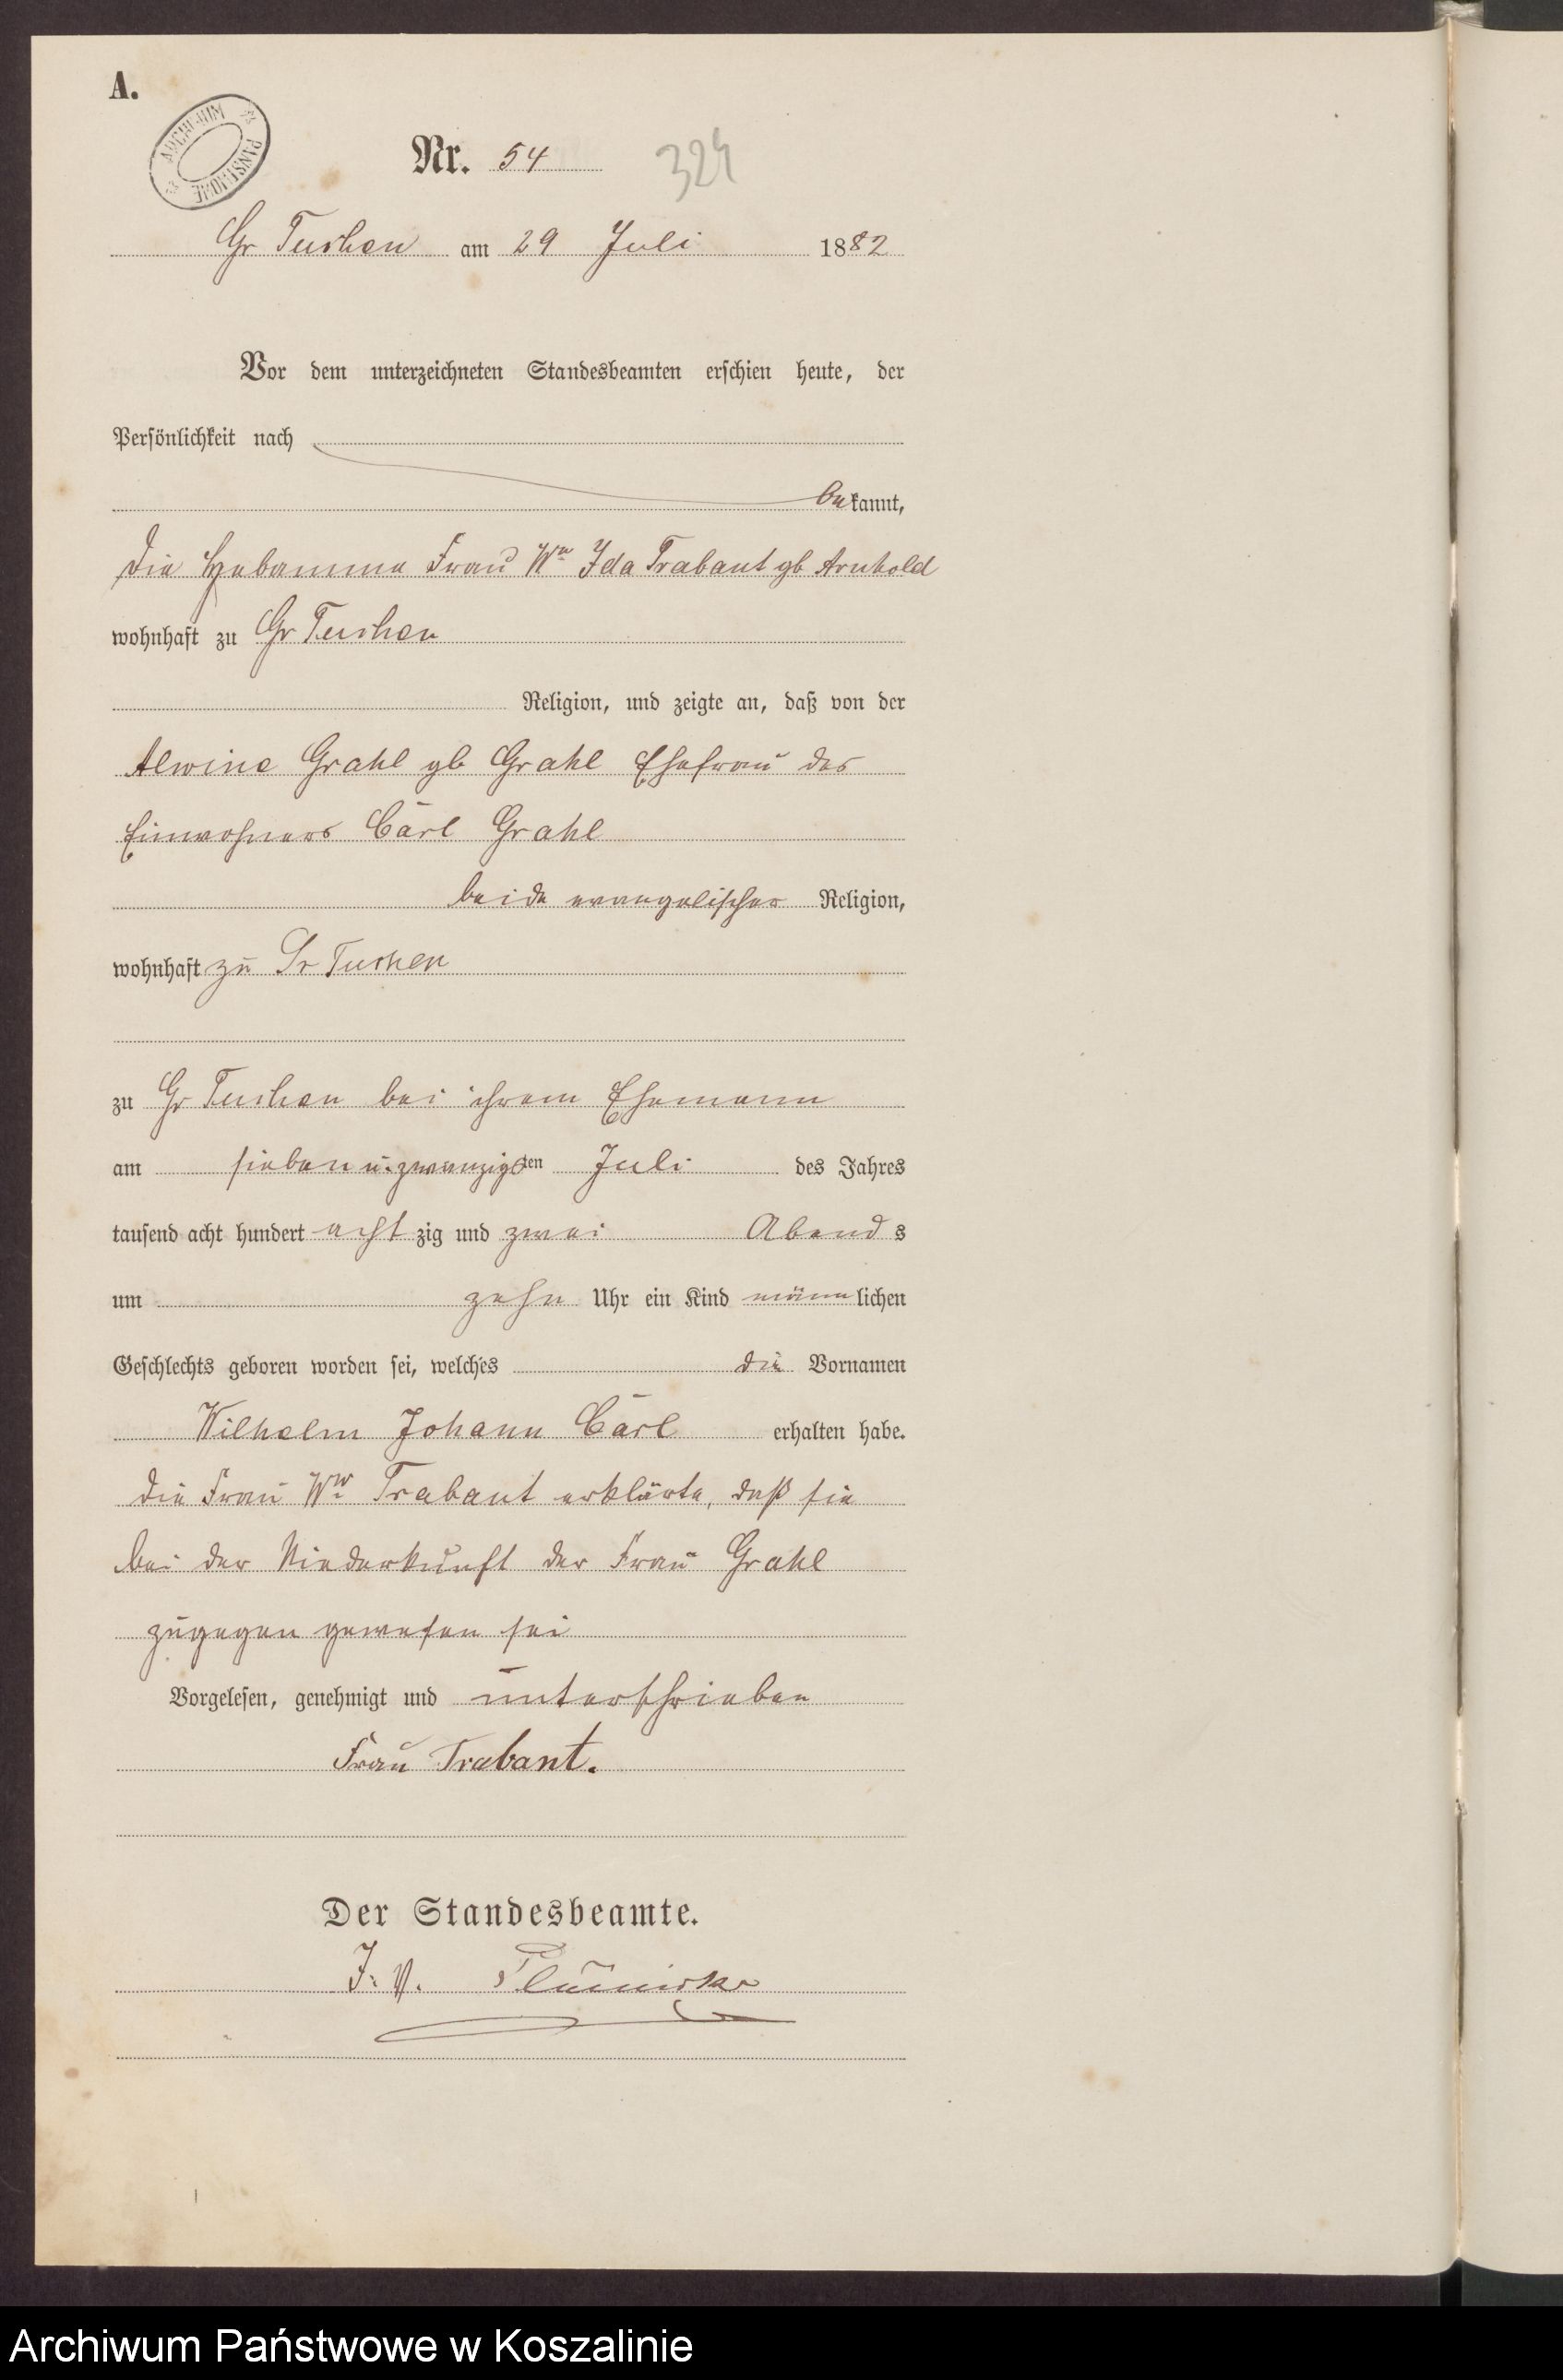 A.
ARCHIWUM PAŃSTWOWE
Nr. 54
324
Gr Tuchen am 29 Juli 1882
Vor dem unterzeichneten Standesbeamten erschien heute, der
Persönlichkeit nach
bekannt,
die Hebamme Frau Ww Ida Trabant gb Arnhold
wohnhaft zu Gr Tuchen
Religion, und zeigte an, daß von der
Alwine Grahl gb Grahl Ehefrau des
Einwohners Carl Grahl
beide evangelischer Religion,
wohnhaft zu Gr Tuchen
zu Gr Tuchen bei ihrem Ehemann
am sieben u. zwanzigsten Juli des Jahres
tausend acht hundert acht zig und zwei Abends
um zehn Uhr ein Kind männlichen
Geschlechts geboren worden sei, welches die Vornamen
Wilhelm Johann Carl erhalten habe.
die Frau Ww Trabant erklärte, daß sie
bei der Niederkunft der Frau Grahl
zugegen gewesen sei
Vorgelesen, genehmigt und unterschrieben
Frau Trabant.
Der Standesbeamte.
J. V.
Archiwum Państwowe w Koszalinie